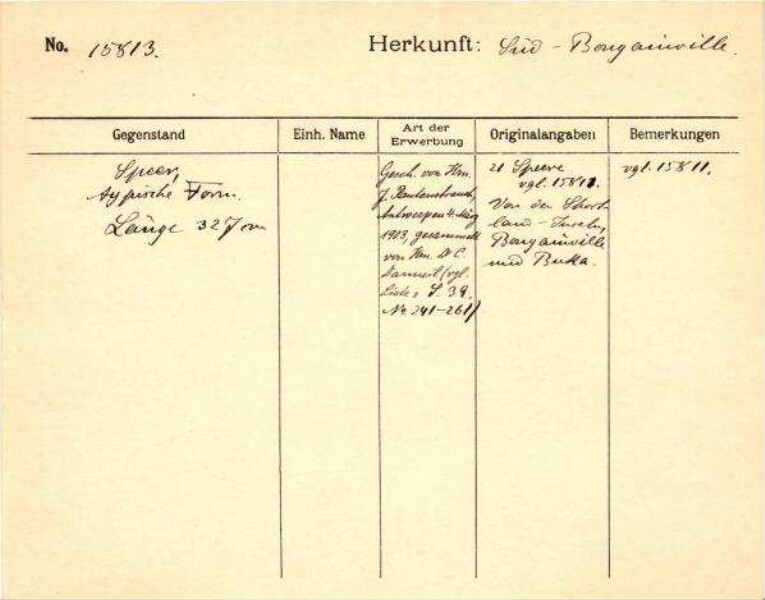 No. 15813.
Herkunft: Süd - Bougainville.
Gegenstand
Einh. Name
Art der Erwerbung
Originalangaben
Bemerkungen
Speer,
typische Form.
Länge 327 cm
Gesch. von Hrn.
J. Rautenstrauch,
Antwerpen 4. März
1903, gesammelt
von Hrn. 
(vgl.
Liste, S. 39.
Nr. 241-261)
21 Speere
vgl. 15811.
Von den Short
land - Inseln,
Bougainville
und Buka.
vgl. 15811.